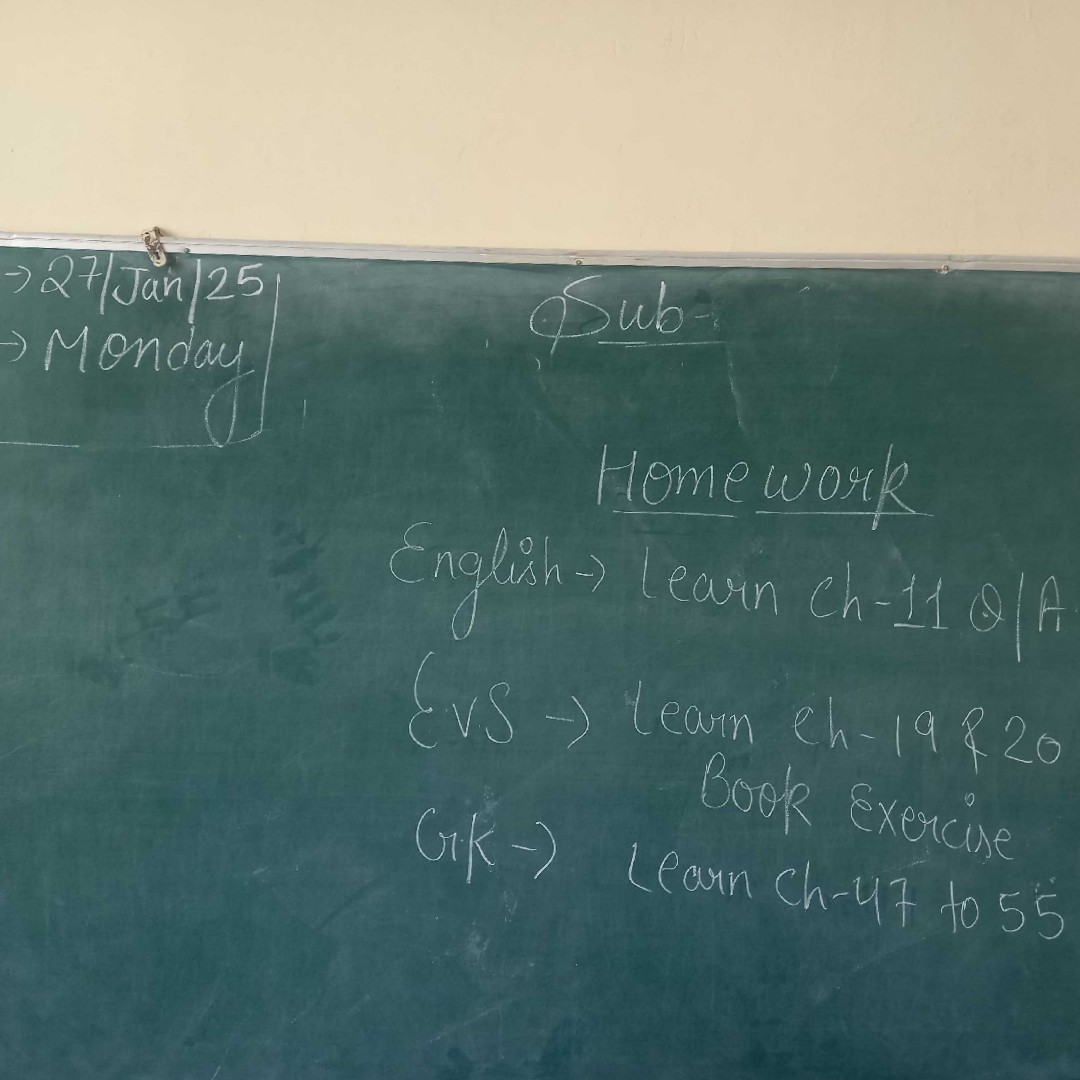 → 27/Jan/25
→ Monday
Sub-
Homework
English → Learn Ch-11 Q/A
EVS → Learn Ch-19 & 20
Book Exercise
G.K → Learn Ch-47 to 55